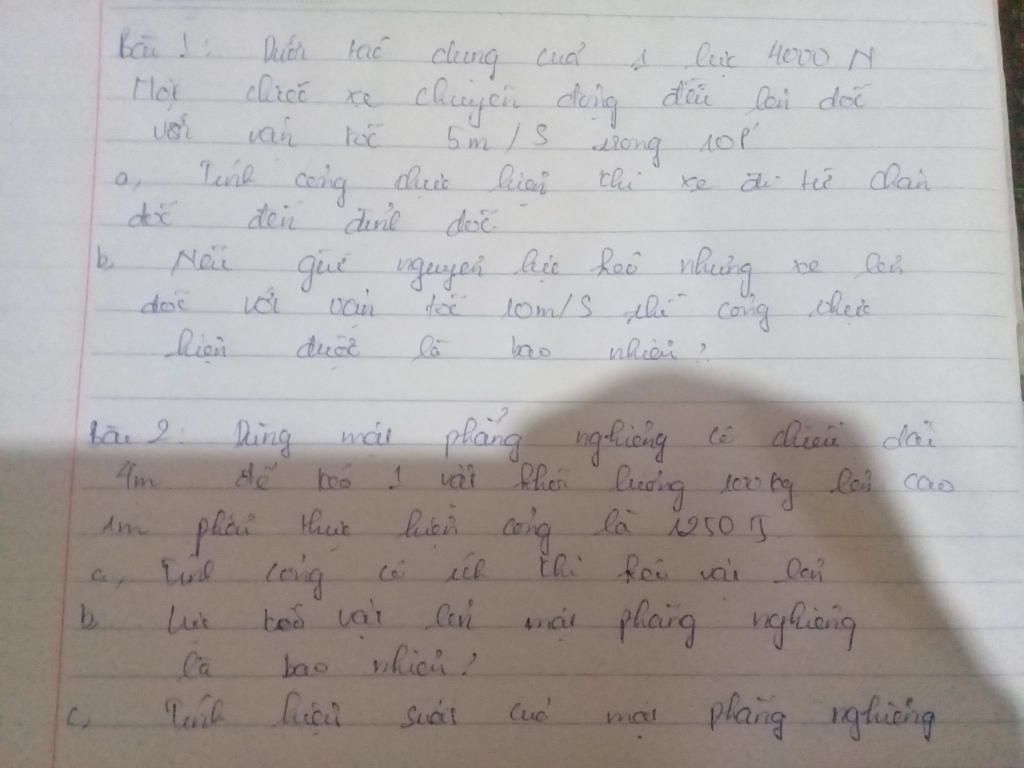 Bài 1: Dưới tác dụng của 1 lực 4000 N
Một chiếc xe chuyển động đều lên dốc
với vận tốc 5m/s trong 10P'
a, Tính công thực hiện khi xe đi từ chân
dốc đến đỉnh dốc.
b, Nếu giữ nguyên lực kéo nhưng xe lên
dốc với vận tốc 10m/s thì công thực
hiện được là bao nhiêu?
Bài 2: Dùng mặt phẳng nghiêng có chiều dài
4m để kéo 1 vật khối lượng 100kg lên cao
1m phải thực hiện công là 1250 J
a, Tính công có ích khi kéo vật lên
b, Lực kéo vật lên mặt phẳng nghiêng
là bao nhiêu?
c, Tính hiệu suất của mặt phẳng nghiêng